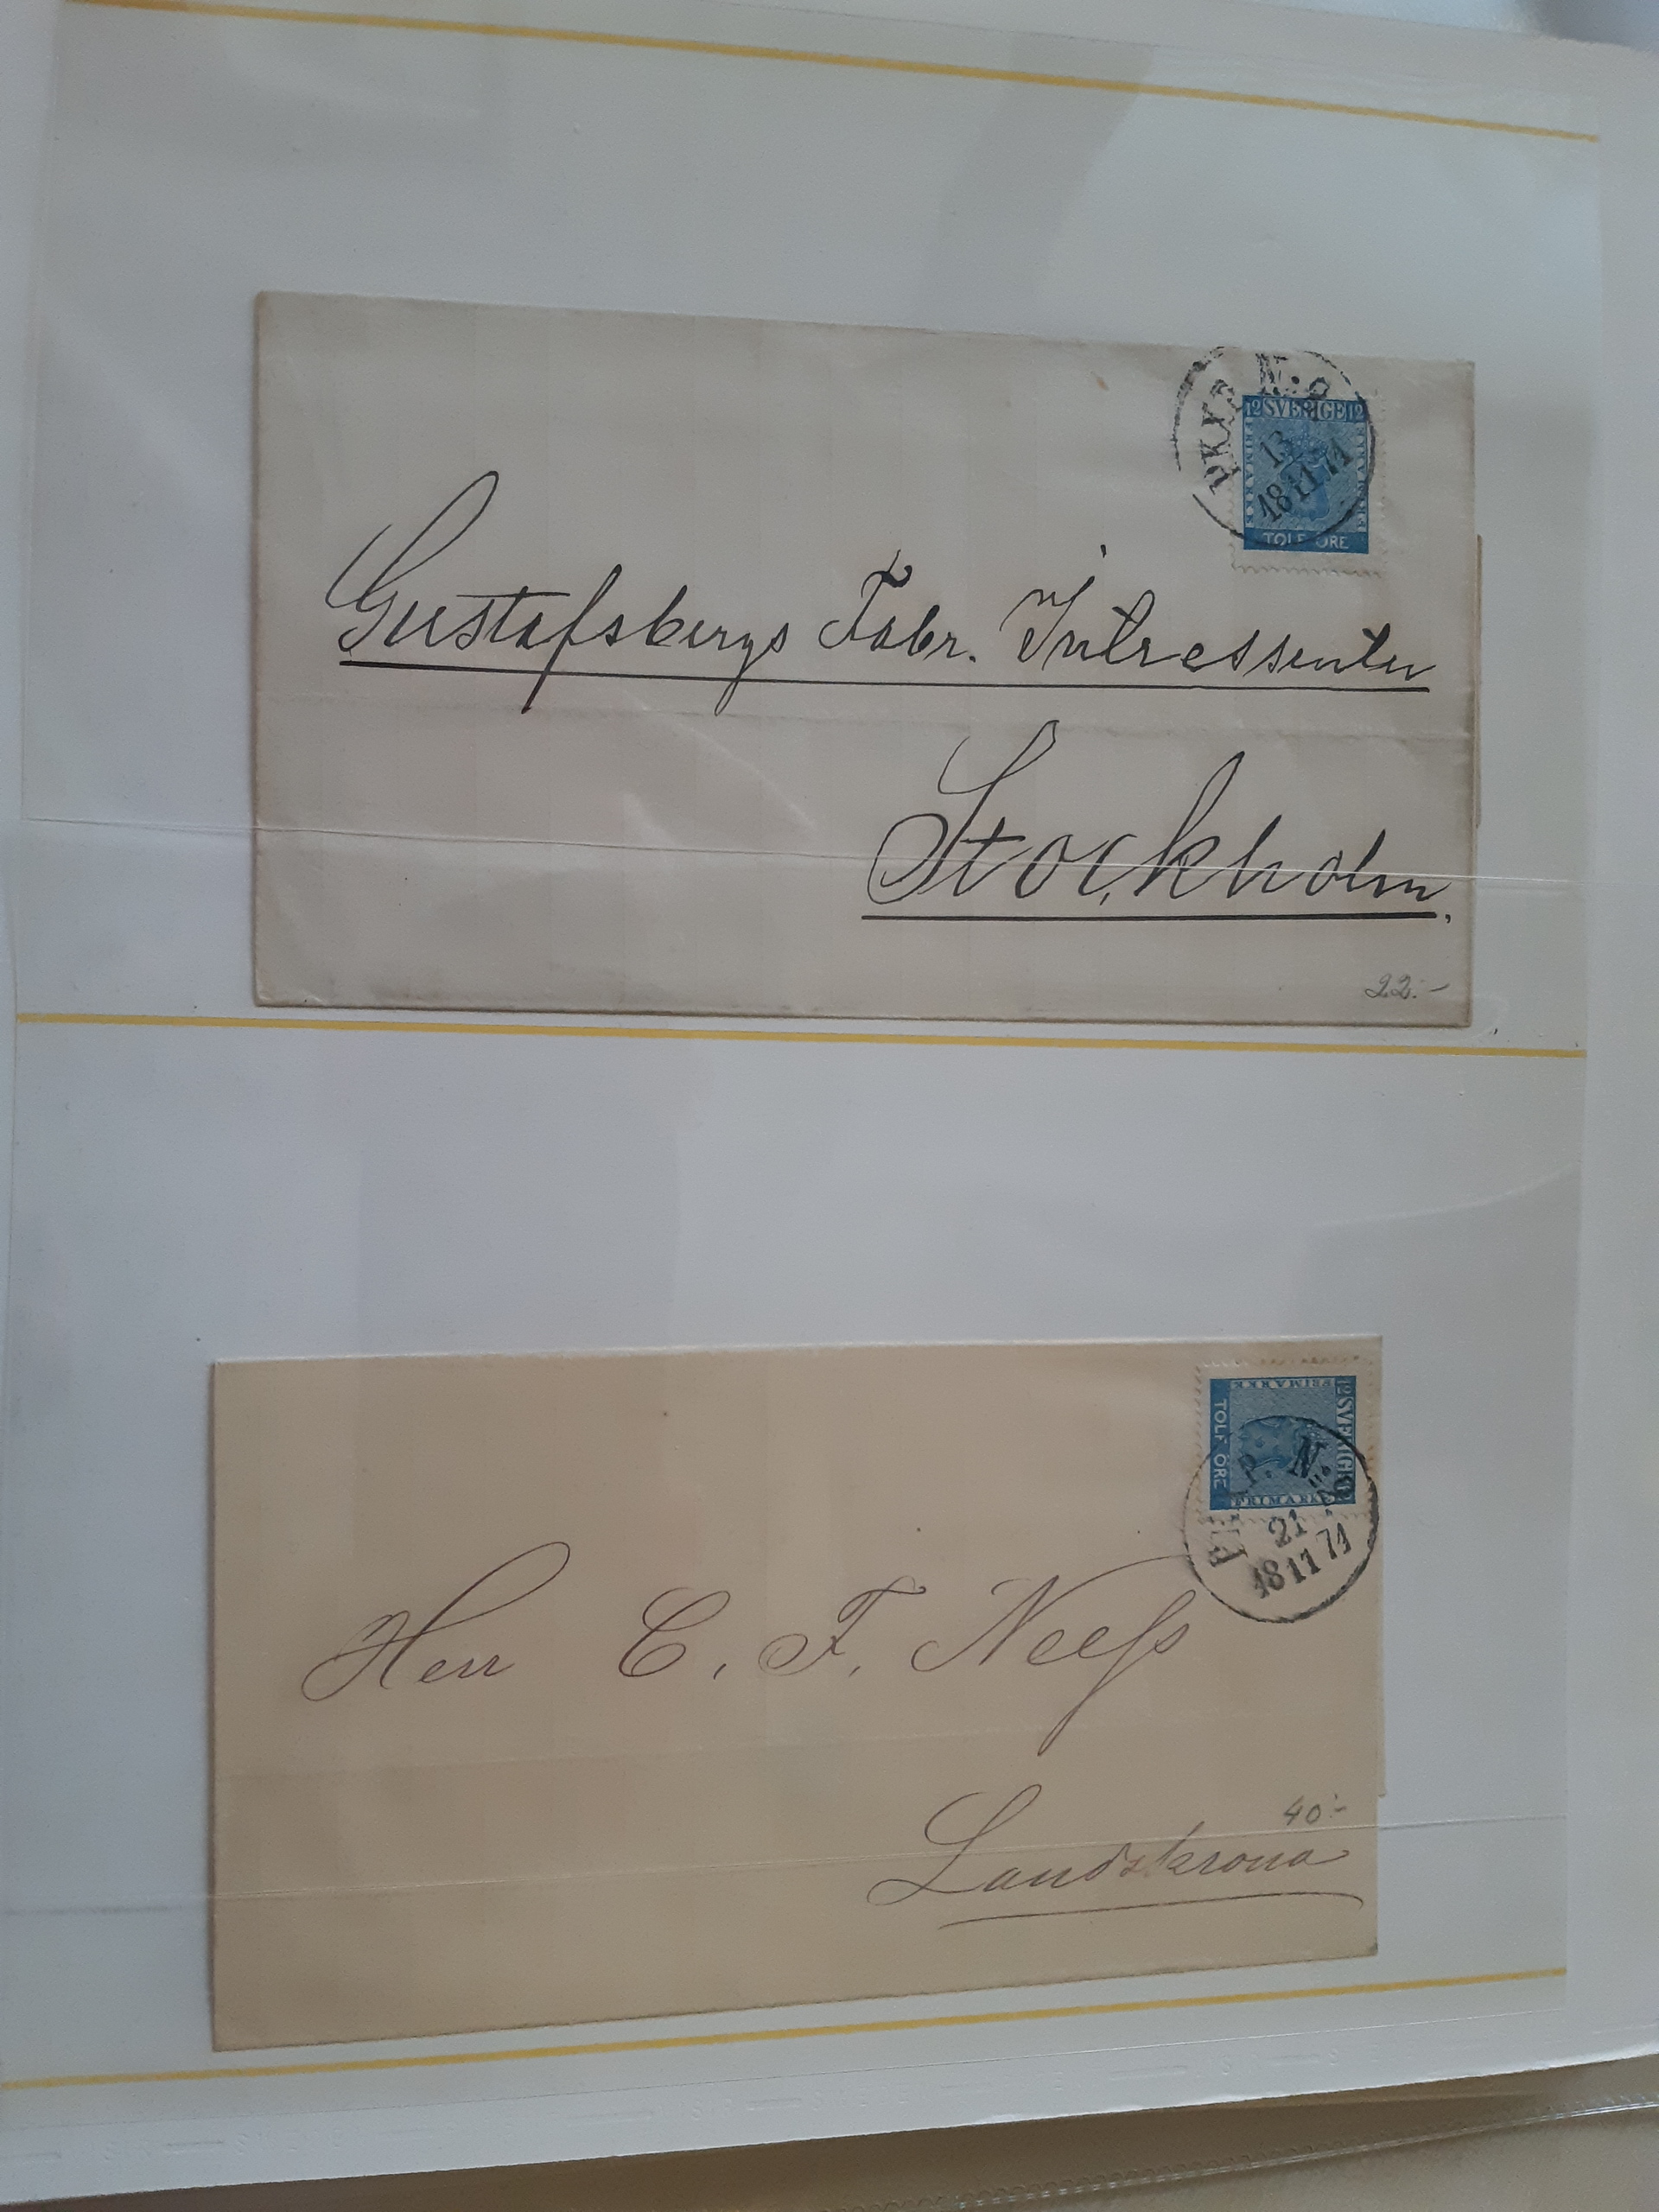 PKXP N:o 2
12 SVERIGE 12
FRIMÄRKE
13
18 11 71
TOLF ÖRE
Gustafsbergs Fabr. Intressenter
Stockholm.
22:-
FRIMÄRKE
12 SVERIGE 12
TOLF ÖRE
P. N:o
FRIMÄRKE
21
18 11 71
Herr C. F. Neess
40:-
Landskrona